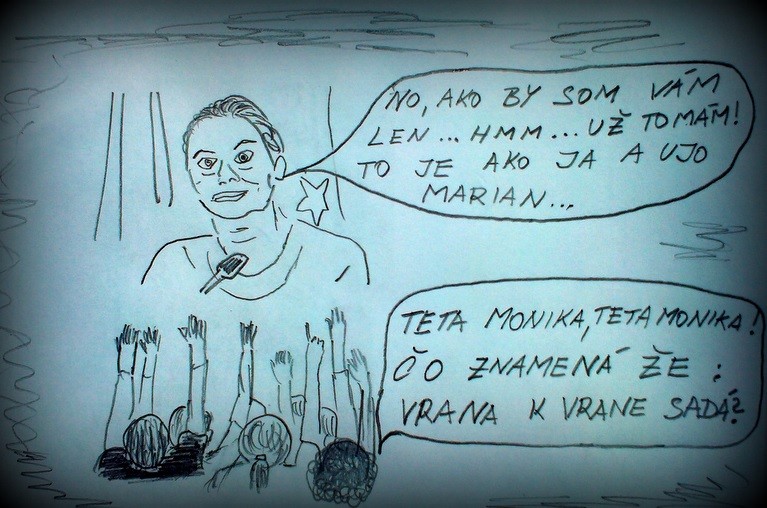 NO, AKO BY SOM VÁM
LEN ... HMM ... UŽ TO MÁM!
TO JE AKO JA A UJO
MARIAN...
TETA MONIKA, TETA MONIKA!
ČO ZNAMENÁ ŽE :
VRANA K VRANE SADÁ?